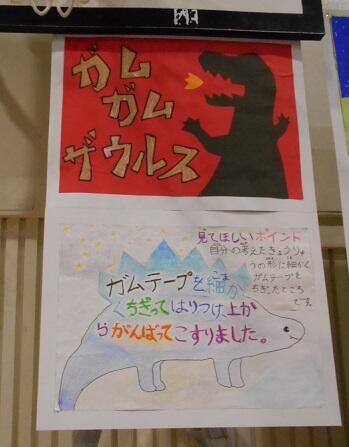 ガム
ガム
ザウルス
見てほしいポイント
自分の考えたきょうりゅ
うの形に細かく
ガムテープを
ちぎったところ
です。
ガムテープを細か
くちぎってはりつけ上か
らがんばってこすりました。